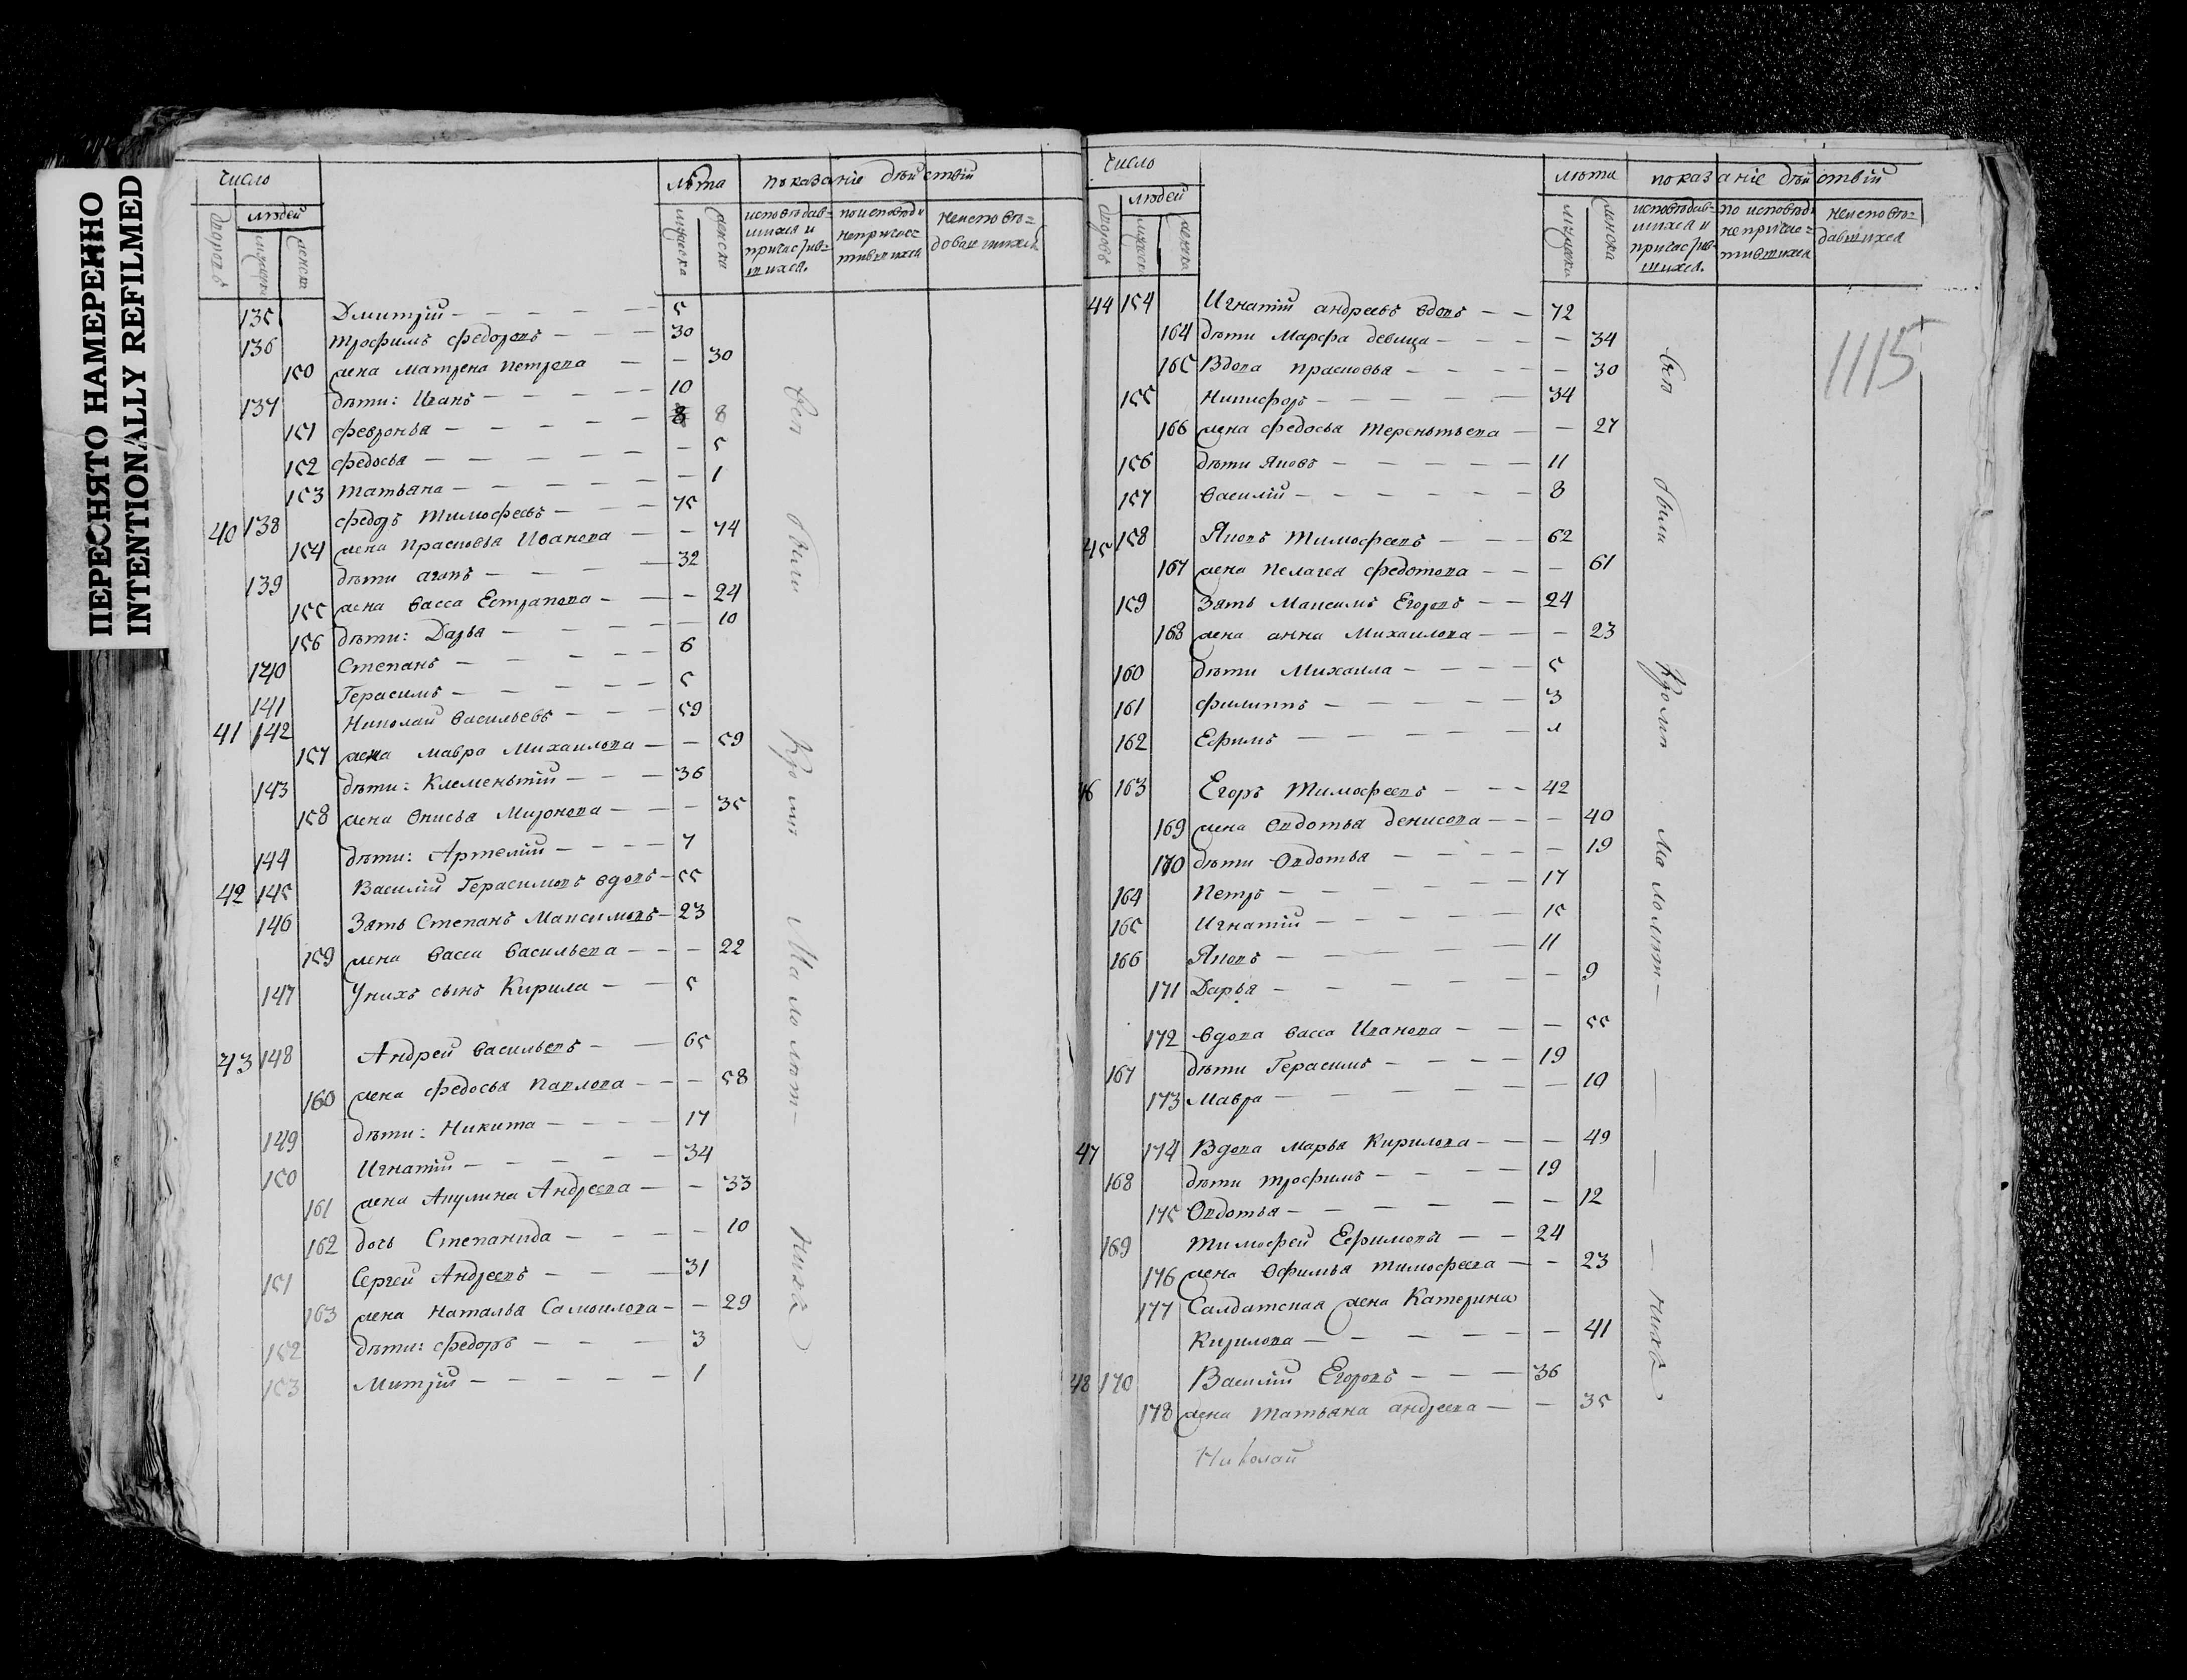 ПЕРЕСНЯТО НАМЕРЕННО
INTENTIONALLY REFILMED
число
лѣта показаніе дѣйствій
людей
дворовъ мужеска женска
мужеска женска
исповѣдав=
шихся и
причастив=
шихся.
по исповѣди
непричас=
тившихся
неисповѣ=
довавшихся
135 Дмитрій — 5
136 Трофимъ Федоровъ — 30
150 жена Матрена Петрова — 30
137 дѣти: Иванъ — 10
151 Февронья — 8 8
152 Федосья — 5
153 Татьяна — 1
40 138 Федоръ Тимофеевъ — 75
154 жена Прасковья Иванова — 74
139 дѣти Агапъ — 32
155 жена Васса Естратова — 24
156 дѣти: Дарья — 10
140 Степанъ — 6
141 Герасимъ — 5
41 142 Николай Васильевъ — 59
157 жена Мавра Михаилова — 59
143 дѣти: Клементій — 36
158 жена Онисья Миронова — 35
144 дѣти: Артемій — 7
42 145 Василій Герасимовъ вдовъ — 55
146 Зять Степанъ Максимовъ — 23
159 жена Васса Васильева — 22
147 Унихъ сынъ Кирила — 5
43 148 Андрей Васильевъ — 65
160 жена Федосья Павлова — 58
149 дѣти: Никита — 17
150 Игнатій — 34
161 жена Акулина Андреева — 33
162 дочь Степанида — 10
151 Сергей Андреевъ — 31
163 жена Наталья Самоилова — 29
152 дѣти: Федоръ — 3
153 Митрій — 1
Всѣ были Кромѣ Малолѣт— нихъ
число
лѣта показаніе дѣйствій
людей
дворовъ мужеска женска
мужеска женска
исповѣдав=
шихся и
причастив=
шихся.
по исповѣди
непричас=
тившихся
неисповѣ=
давшихся
1115
44 154 Игнатій Андреевъ вдовъ — 72
164 дѣти Марфа девица — 34
165 Вдова Прасковья — 30
155 Никифоръ — 34
166 жена Федосья Терентьева — 27
156 дѣти Яковъ — 11
157 Василій — 8
45 158 Яковъ Тимофеевъ — 62
167 жена Пелагея Федотова — 61
159 Зять Максимъ Егоровъ — 24
168 жена Анна Михаилова — 23
160 дѣти Михаила — 5
161 Филиппъ — 3
162 Ефимъ — 1
46 163 Егоръ Тимофеевъ — 42
169 жена Овдотья Денисова — 40
170 дѣти Овдотья — 19
164 Петръ — 17
165 Игнатій — 15
166 Яковъ — 11
171 Дарья — 9
172 вдова Васса Иванова — 55
167 дѣти Герасимъ — 19
173 Мавра — 10
47 174 Вдова Марья Кирилова — 49
168 дѣти Трофимъ — 19
175 Овдотья — 12
169 Тимофей Ефимовъ — 24
176 жена Офимья Тимофеева — 23
177 Салдатская жена Катерина
Кирилова — 41
48 170 Василій Егоровъ — 36
178 жена Татьяна Андреева — 35
Николай
Всѣ были Кромѣ Малолѣт— нихъ